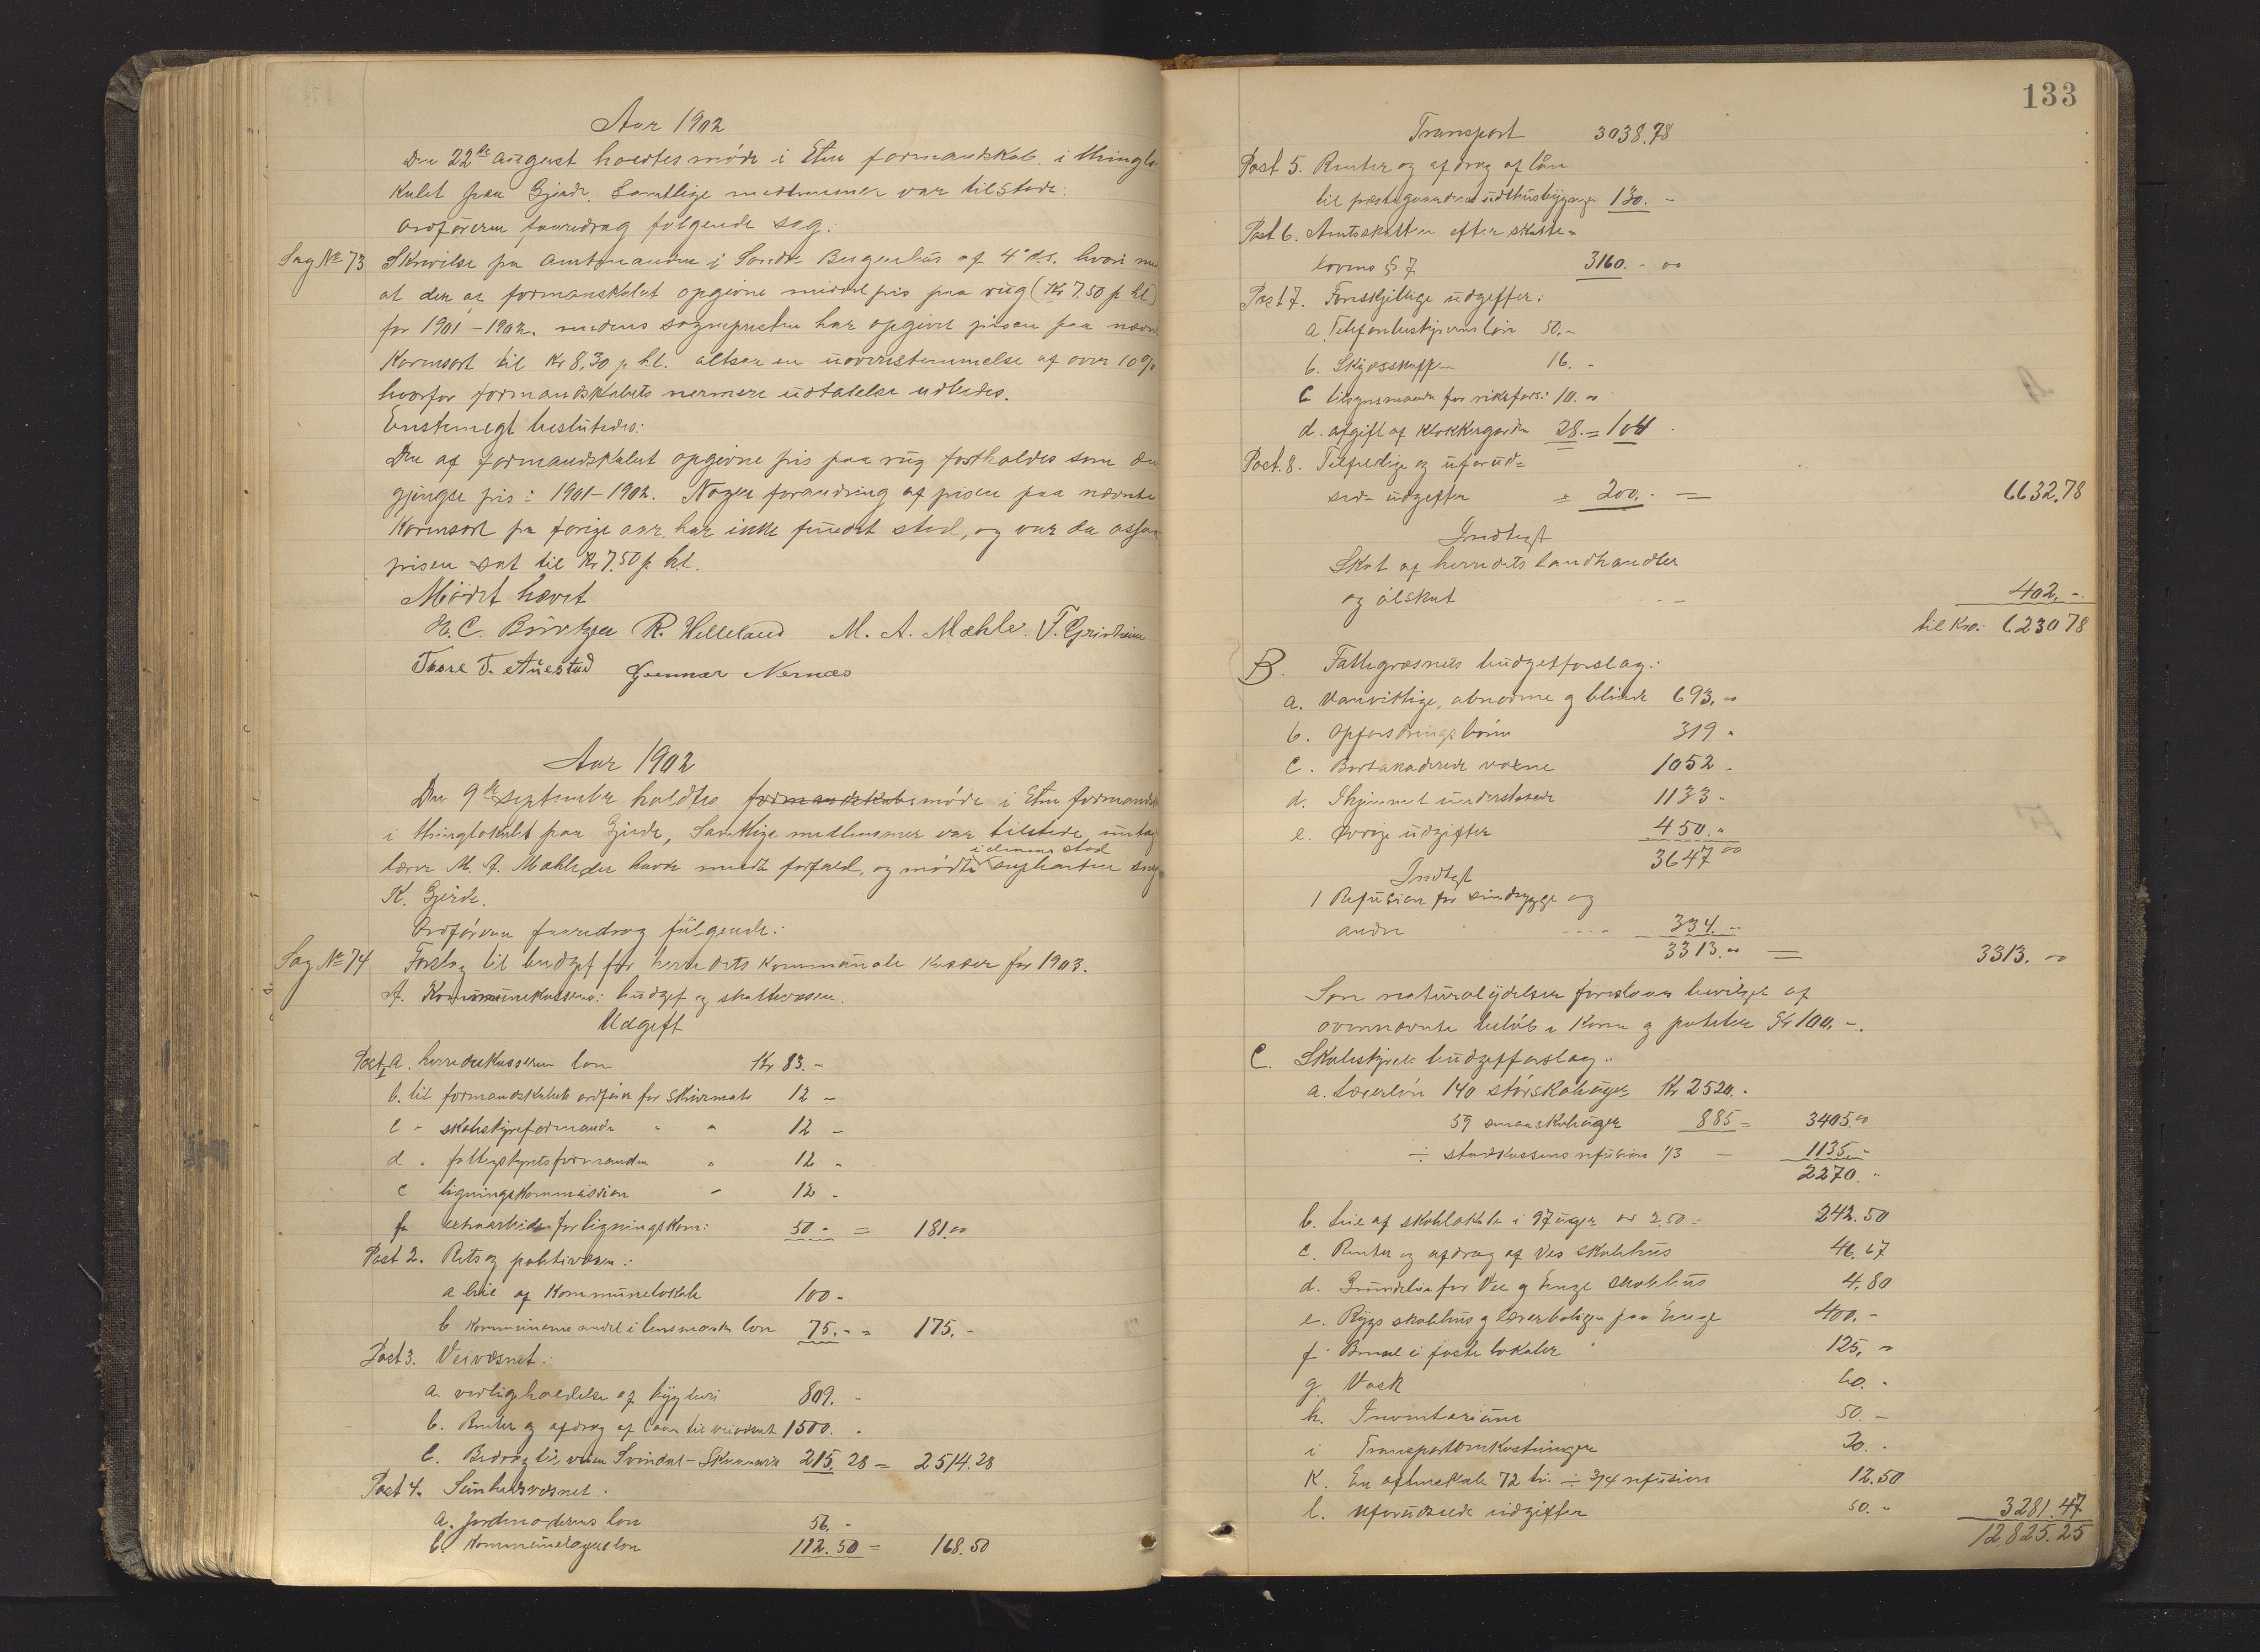 Aar 1902
Den 22de august holdtes møde i Etne formandskab i thinglo-
kalet paa Gjerde. Samtlige medlemmer var tilstede.
Ordføreren foredrag følgende sag:
Sag No 73 Skrivelse fra amtmanden i Søndre Bergenhus af 4de ds. hvori
at den af formanskabet opgivne middelpris paa rug (Kr 7.50 p hl)
for 1901-1902. medens sognepresten har opgivet prisen paa nævn
Kornsort til Kr 8,30 p. hl. altsaa en uoverenstemmelse af over 10%
hvorfor formandskabets nermere udtalelse udbedes.
Enstemegt beslutedes:
Den af formandskabet opgivne pris paa rug fastholdes som den
gjengse pris: 1901-1902. Nogen forandring af prisen paa nævnte
Kornsort fra forige aar har ikke fundet sted, og var da ogsaa
prisen sat til Kr 7.50 p. hl.
Mødet hævet
H. C. R. Helleland M. A. Mæhle. T. Grindheim
Tore T. Auestad Gunnar Nernæs
Aar 1902
Den 9de september holdtes formandskabsmøde i Etne formandsk
i thinglokalet paa Gjerde, Samtlige medlemmer var tilstede, untag
lærer M. A. Mæhle der havde meldt forfald, og mødte i dennes sted suplianten
K. Gjerde.
Ordføreren foredrog fülgende:
Sag No 74 Forslag til budget for herredets kommunale kasser for 1903.
A. Kommunekassens: budget og skattevæsen.
Udgift
Post 1 a. herredskasseren løn Kr 83.-
b. til formandskabets ordfører for skrivemat. 12 -
c - skolestyreformand " " 12 -
d " fattigstyretsformanden " 12 -
e ligningskommission - 12 -
f extraarbeide for ligningskom: 50 - = 181.00
Post 2. Rets og politivæsen:
a leie af Kommunelokale 100 -
b Kommunens andel i lensmands løn 75. - = 175. -
Post 3. Veivæsnet:
a. vedligeholdelse af bygdevei 809. -
b. Renter og afdrag af laan til veivæsnet 1500. -
c. Bidrag til veien Svindal - 215.28 = 2514.28
Post 4. Sunhedsvæsnet.
a. Jordmoderens løn 56. -
b. Kommunelægens løn 112.50 = 168.50
133
Transport 3038.78
Post 5. Renter og afdrag af lån
til præstegaardens udthusbygninger 130. -
Post 6. Amtsskatten efter skatte-
lovens § 7 3160. - 00
Post 7. Forskjellige udgifter:
a. Telefonbestyrerens løn 50. -
b. Skydsskaffer 16. -
c tilsynsmand for riksfors: 10. 00
d. afgift af klokkergarden 28. = 104.
Post. 8. Tilfeldige og uforud-
sede udgifter = 200. - = 6632.78
Indtegt
Skat af herredets landhandler
og ølskat - - 402. -
til Kro: 6230 78
B. Fattigvæsnets budgetforslag:
a. Vanvittige, abnorme og blinde 693, 00
b. Opfostringsbørn 319 "
c. Bortakoderede voxne 1052 -
d. I hjemmet understøttede 1133 -
e. Øvrige udgifter 450. "
3647 00
Indtegt
1 Refusion for sindsyge og
andre - - - - 334. -
3313. 00 = 3313. 00
Som naturalydelser foreslaaes bevilget af
ovennævnte beløb i Korn og poteter Kr 100, -.
C. Skolestyrets budgetforslag:
a. Lærerløn 140 storskoleuger Kr 2520. -
59 smaaskoleuger 885 = 3405.00
÷ stadskassens refusion 1/3 - 1135. -
2270. "
b. Leie af skolelokale i 97 uger 2.50 = 242.50
c. Renter og afdrag af Ves skolehus 46.67
d. Grundleie for Ve og Enge skolehus 4.80
e. Bygs skolehus og lærerboligen paa Enge 400. -
f. Brænsel i faste lokaler 125, 00
g. Vask 60. -
h. Inventarium 50. -
i Transportomkostninger 20. -
k. En aftenskole 72 ti. ÷ 3/4 refusion 12.50
l. Uforudseede udgifter 50. - 3281.47
12825.25